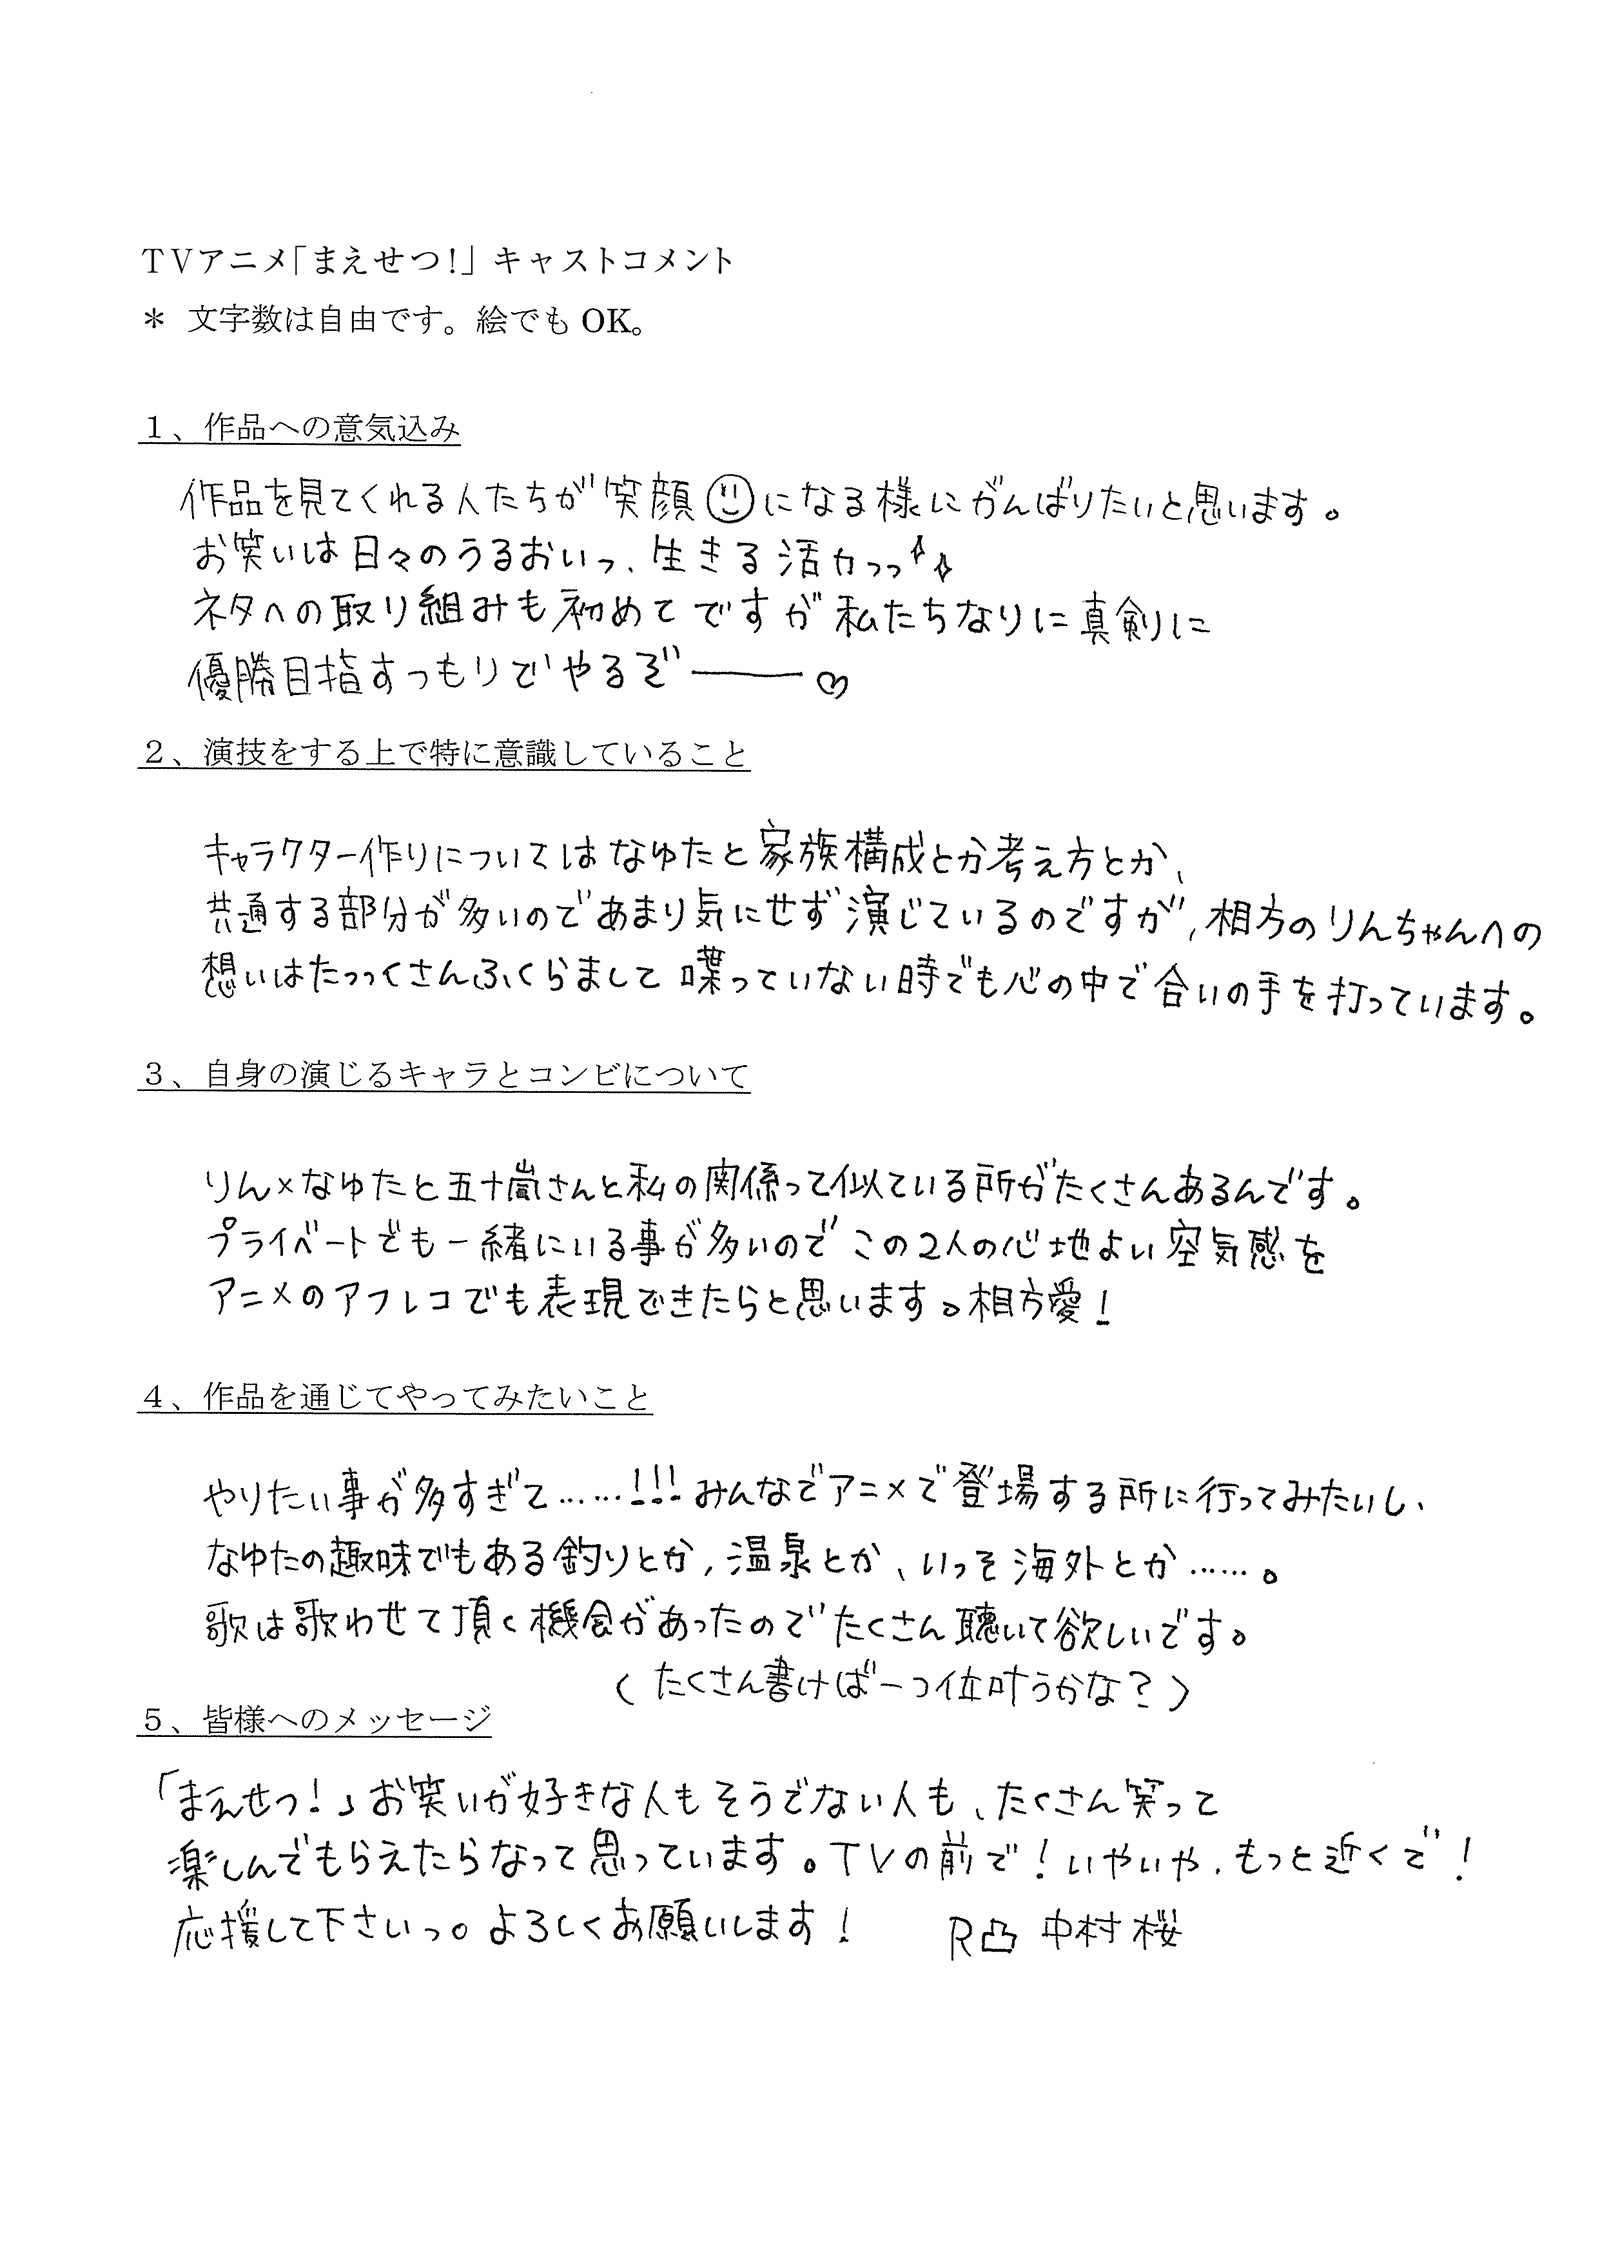 TVアニメ「まえせつ!」キャストコメント
＊ 文字数は自由です。絵でもOK。
１、作品への意気込み
作品を見てくれる人たちが笑顔☺になる様にがんばりたいと思います。
お笑いは日々のうるおいっ、生きる活力っっ✧✧
ネタへの取り組みも初めてですが私たちなりに真剣に
優勝目指すつもりでやるぞ――♡
２、演技をする上で特に意識していること
キャラクター作りについてはなゆたと家族構成とか考え方とか、
共通する部分が多いのであまり気にせず演じているのですが、相方のりんちゃんへの
想いはたっっくさんふくらまして喋っていない時でも心の中で合いの手を打っています。
３、自身の演じるキャラとコンビについて
りん×なゆたと五十嵐さんと私の関係って似ている所がたくさんあるんです。
プライベートでも一緒にいる事が多いのでこの2人の心地よい空気感を
アニメのアフレコでも表現できたらと思います。相方愛！
４、作品を通じてやってみたいこと
やりたい事が多すぎて……!!!みんなでアニメで登場する所に行ってみたいし、
なゆたの趣味でもある釣りとか、温泉とか、いっそ海外とか……。
歌は歌わせて頂く機会があったのでたくさん聴いて欲しいです。
（たくさん書けば一つ位叶うかな？）
５、皆様へのメッセージ
「まえせつ！」お笑いが好きな人もそうでない人も、たくさん笑って
楽しんでもらえたらなって思っています。TVの前で！いやいや、もっと近くで！
応援して下さいっ。よろしくお願いします！ R凸 中村 桜